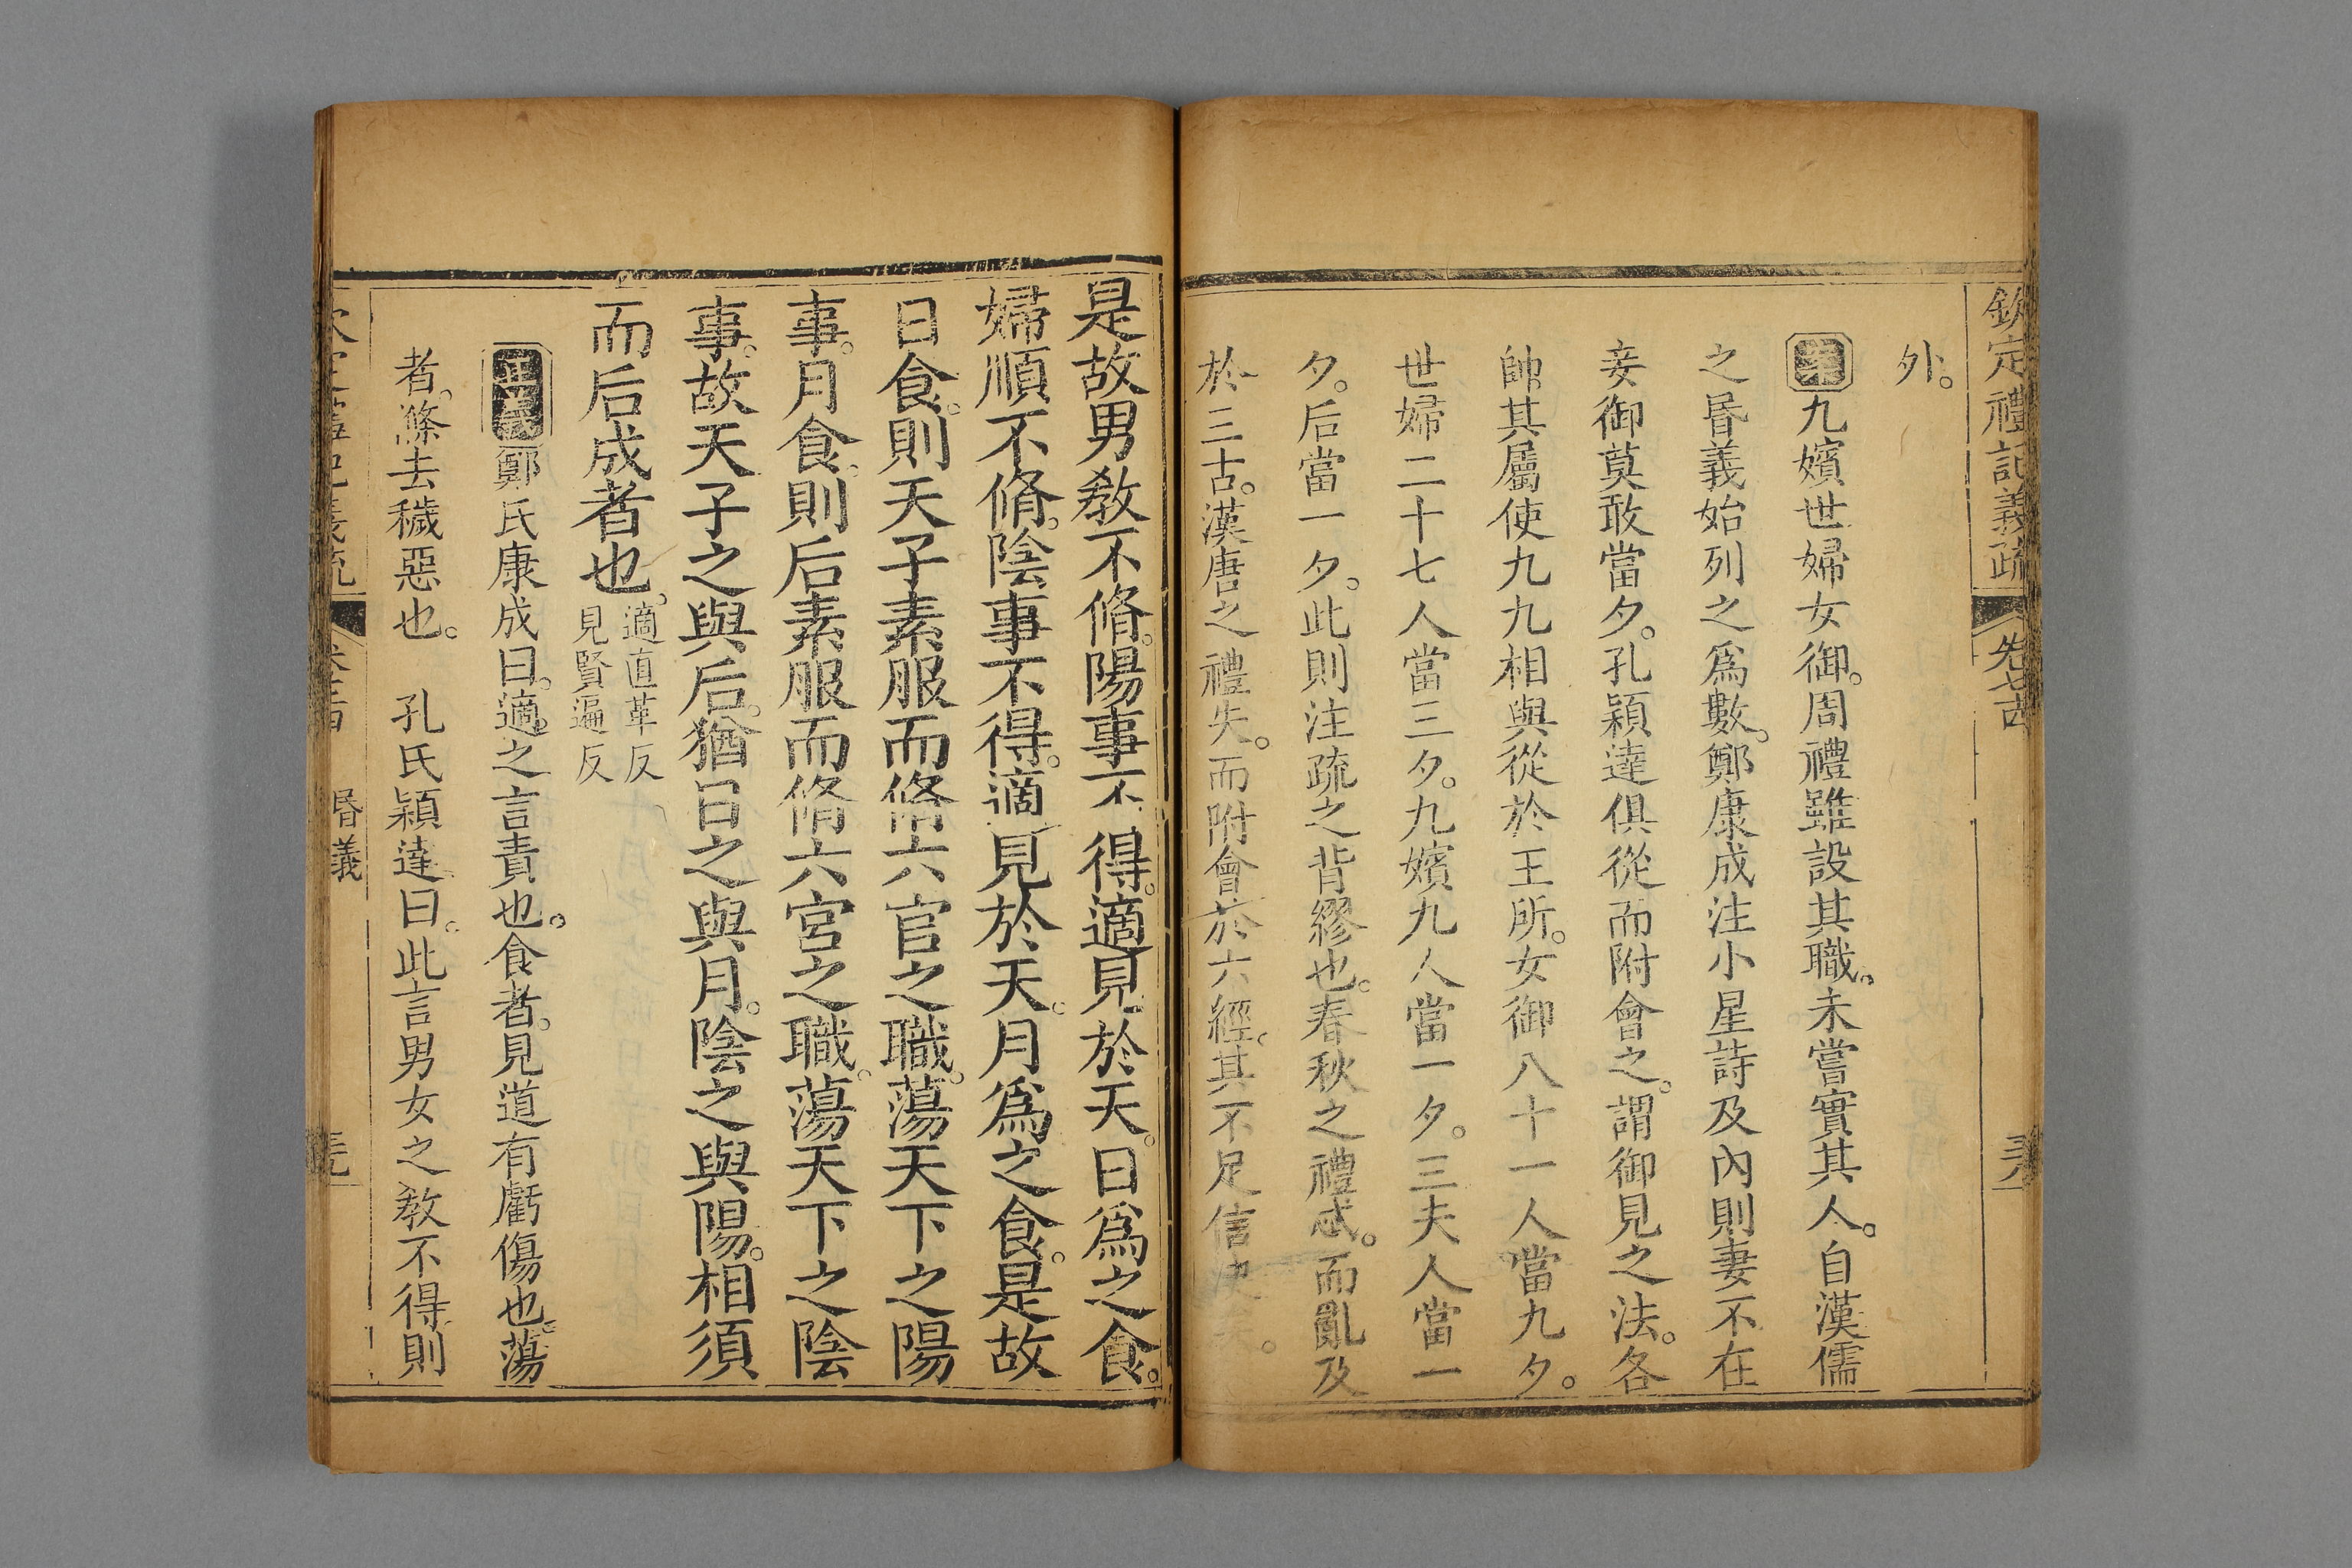 欽定禮記義疏
外。
案九嬪世婦女御。周禮雖設其職。未嘗實其人。自漢儒
之昬義始列之爲數。鄭康成注小星詩及內則妻不在
妾御莫敢當夕。孔穎達俱從而附會之。謂御見之法。各
帥其屬使九九相與從於王所。女御八十一人當九夕。
世婦二十七人當三夕。九嬪九人當一夕。三夫人當一
夕。后當一夕。此則注疏之背繆也。春秋之禮忒。而亂及
於三古。漢唐之禮失。而附會於六經。其不足信決
是故男敎不脩。陽事不得。適見於天。日爲之食。
婦順不脩。陰事不得。適見於天。月爲之食。是故
日食。則天子素服而脩六官之職。蕩天下之陽
事。月食。則后素服而脩六宮之職。蕩天下之陰
事。故天子之與后。猶日之與月。陰之與陽。相須
而后成者也。
適直革反
見賢遍反
正義鄭氏康成曰。適。之言責也。食者。見道有虧傷也。蕩
者。滌去穢惡也。 孔氏穎達曰。此言男女之敎不得。則
昬義